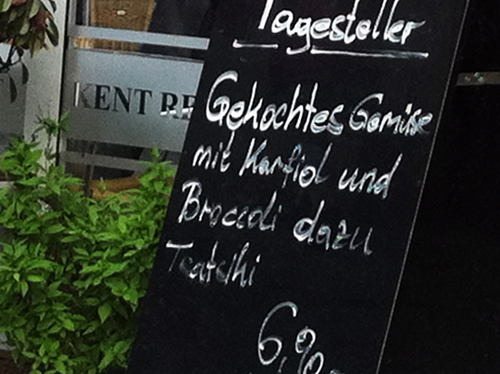 Tagesteller
KENT RE
Gekochtes Gemüse
mit Karfiol und
Broccoli dazu
Tsatsiki
6,90